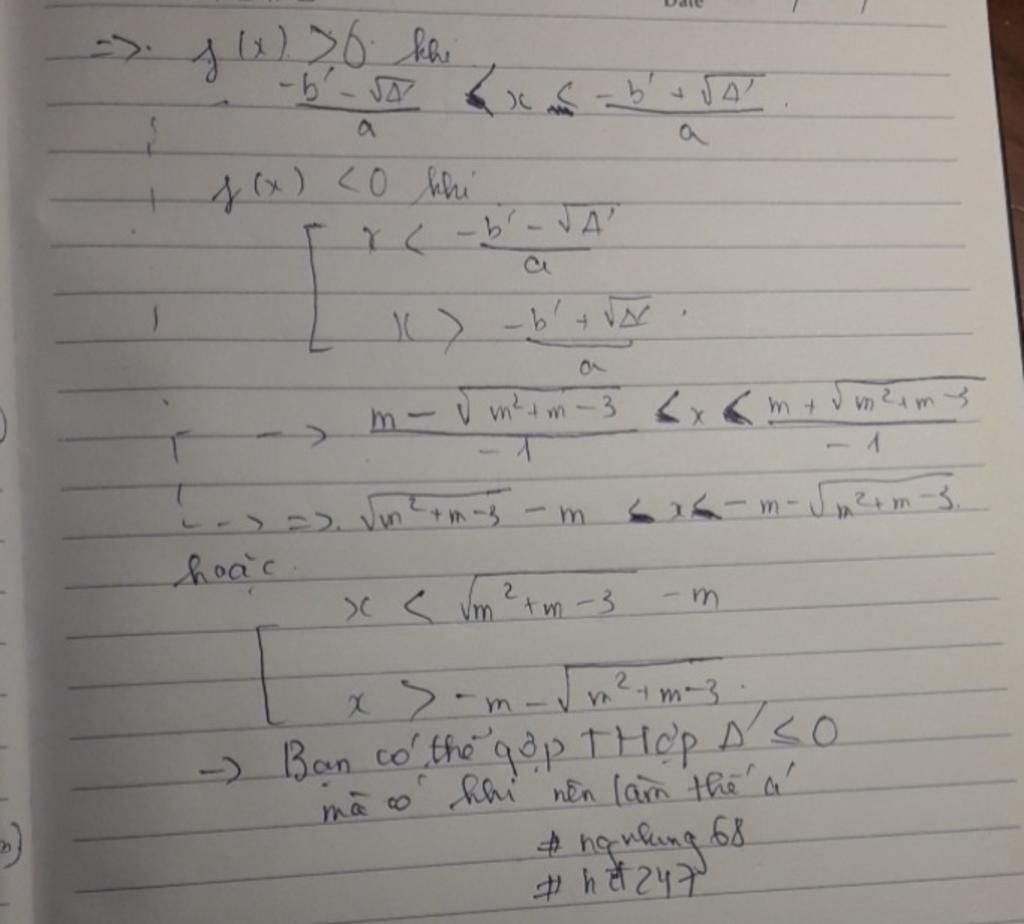 Date / /
=> f(x) > 0 khi
(-b' - √Δ')/a ≤ x ≤ (-b' + √Δ')/a.
f(x) < 0 khi
[ x < (-b' - √Δ')/a
x > (-b' + √Δ')/a.
-> (m - √(m² + m - 3))/(-1) ≤ x ≤ (m + √(m² + m - 3))/(-1)
-> => √(m² + m - 3) - m ≤ x ≤ -m - √(m² + m - 3).
hoặc.
[ x < √(m² + m - 3) - m
x > -m - √(m² + m - 3).
-> Bạn có thể gộp THợp Δ' ≤ 0
mà có khi nên làm thế á
# ngnhung 68
# h 247